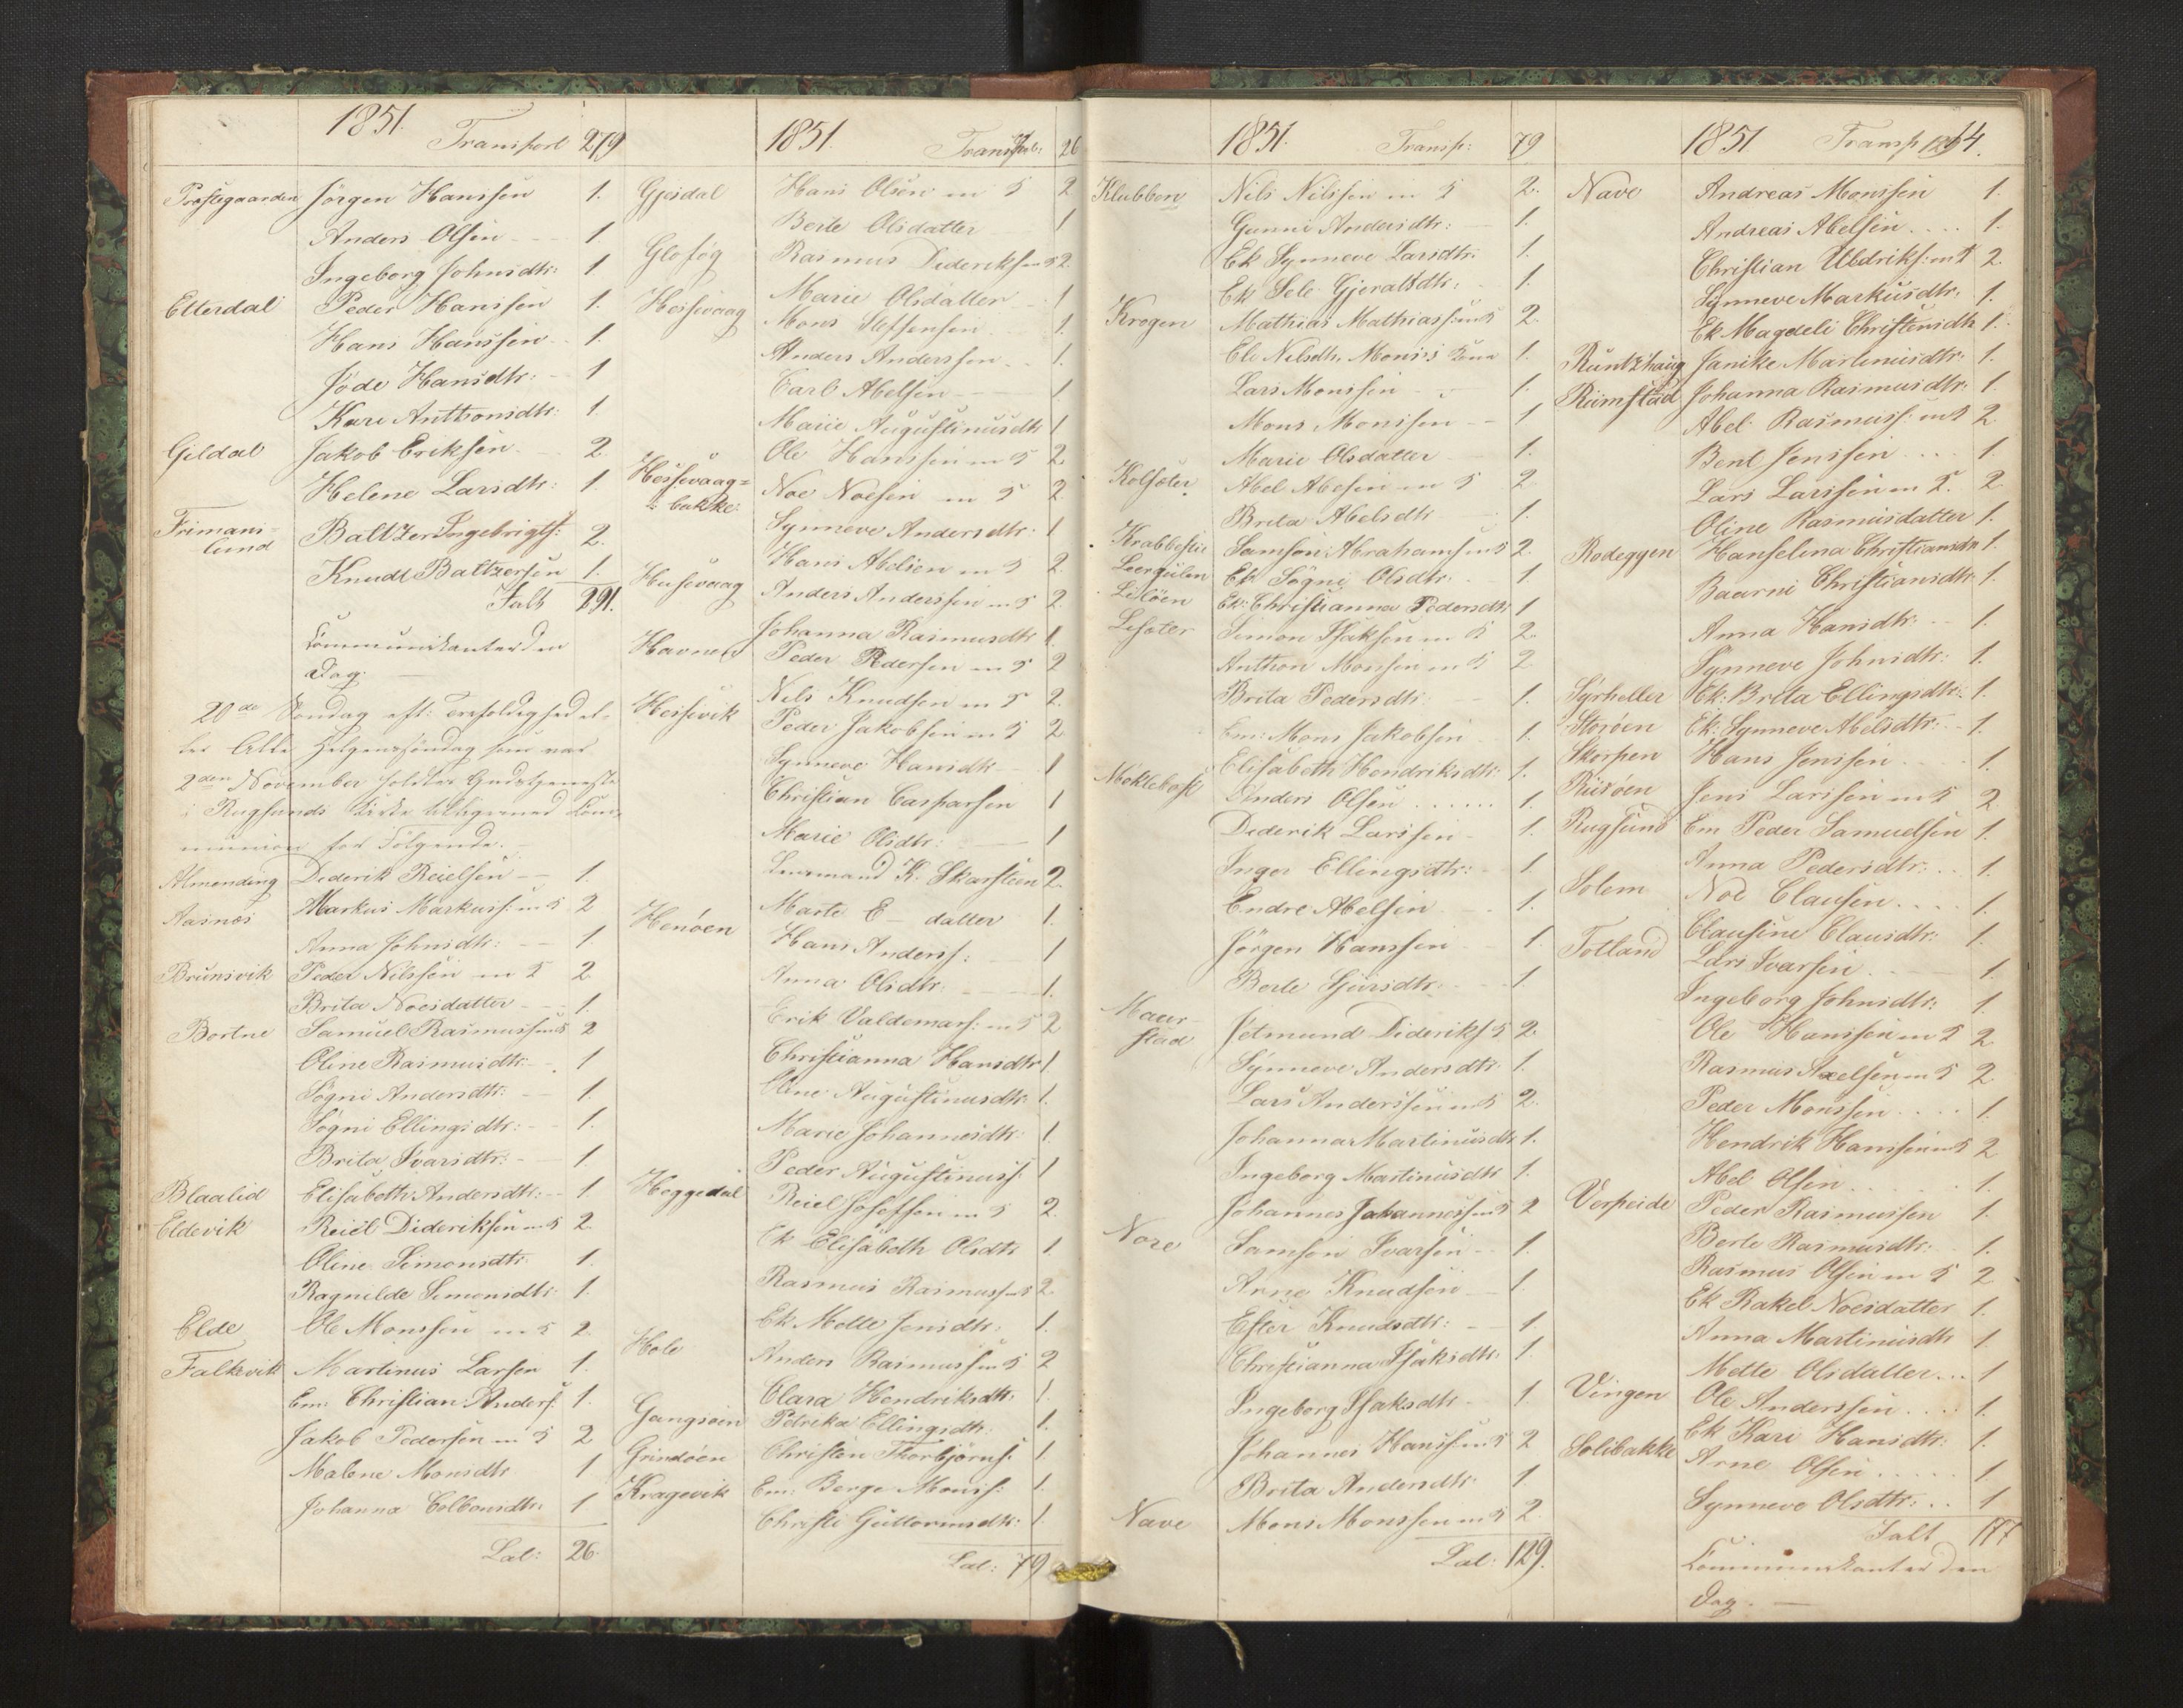 1851.
Transport 279
Præstegaarden Jørgen Hanssen 1.
Anders Olsen 1.
Ingeborg Johnsdtr: 1
Etterdal Peder Hanssen 1.
Hans Hanssen 1.
Jøde Hansdtr: 1
Kari Anthonsdtr: 1.
Gildal Jakob Eriksen 2.
Helene Larsdtr: 1.
Frimans-
lund Baltzer Ingebrigts: 2.
Knudt Baltzersen 1.
Ialt 291.
Communikanter den
Dag.
20de Søndag eft: Trefoldighed el-
ler Alle Helgenssøndag som var
2den November holdtes Gudstjeneste
i Rugsunds Kirke tilligemed Com-
munion for Følgende.
Almending Diderik Reielsen 1.
Aasnæs Markus Markuss: m 5 2
Anna Johnsdtr: 1
Brunsvik Peder Nilssen m 5 2
Brita Noesdatter 1.
Bortne Samuel Rasmussen m 5 2
Oline Rasmusdtr: 1
Søgni Andersdtr: 1.
Søgni Ellingsdtr: 1.
Brita Ivarsdtr: 1
Blaalid Elisabeth Andersdtr: 1
Eldevik Reiel Dideriksen m 5 2.
Oline Simonsdtr 1.
Ragnilde Simonsdtr: 1.
Elde Ole Monssen m 5 2.
Falkevik Martinus Larsen 1.
Em: Christian Anders: 1.
Jakob Pedersen m 5 2
Malene Monsdtr 1
Johanna Colbensdtr: 1
Lat: 26.
1851.
Transport: 26
Gjesdal Hans Olsen m 5 2
Berte Olsdatter 1
Glosøg Rasmus Dideriksen m 5 2.
Hessevaag Marie Olsdatter 1
Mons Steffensen 1.
Anders Anderssen 1.
Carl Abelsen 1
Marie Augustinusdtr 1
Ole Hanssen m 5 2
Hessevaag=
bakke: Noe Noesen m 5 2
Synneve Andersdtr: 1
Hans Abelsen m 5 2
Husevaag Anders Anderssen m 5 2
Johanna Rasmusdtr 1.
Havnen Peder Pedersen m 5 2
Hessevik Nils Knudsen m 5 2.
Peder Jakobsen m 5 2
Synneve Hansdtr 1
Christian Casparsen 1
Marie Olsdtr: 1
Lensmand K. Skarsteen 2.
Henøen Marte E datter 1.
Hans Anderss: 1
Anna Olsdtr: 1.
Erik Valdemars: m 5 2
Christianna Hansdtr 1
Oline Augustinusdtr: 1.
Marie Johannesdtr: 1.
Peder Augustinuss: 1
Heggedal Reiel Josefsen m 5 2.
Ek Elisabeth Olsdtr 1
Rasmus Rasmuss m 5 2.
Ek Mette Jensdtr: 1.
Hole Anders Rasmussen m 5 2
Clara Hendriksdtr: 1.
Gangsøen Petrika Ellingsdtr: 1.
Grindøen Christen Thorbjørns: 1.
Kragevik Em: Berge Monss: 1.
Christi Guttormsdtr: 1.
Lat: 79
1851.
Transp: 79
Klubben Nils Nilssen m 5 2.
Gunni Andersdtr: 1.
Ek Synneve Larsdtr: 1.
Ek Sele Gjeraldsdtr: 1.
Krogen Mathias Mathiass: m 5 2.
Eli Nilsdtr. Mons's Kone 1.
Lars Monssen 1.
Mons Monssen 1
Marie Olsdatter 1.
Kolsæter Abel Abelsen m 5 2
Brita Abelsdtr 1.
Krabbestie Samson Abrahams m 5 2.
Leergulen Ek Søgni Olsdtr: 1.
Lisøen Ek: Christianna Pedersdtr 1
Lisæter Simon Isaksen m 5 2.
Anthon Monsen m 5 2
Brita Pedersdtr 1.
Em: Mons Jakobsen 1.
Elisabeth Hendriksdtr: 1.
Møklebost Anders Olsen 1.
Diderik Larssen 1.
Inger Ellingsdtr: 1
Endre Abelsen 1.
Jørgen Hanssen 1.
Berte Sjursdtr: 1
Maur-
stad Jetmund Dideriks 5 2.
Synneve Andersdtr: 1.
Lars Anderssen m 5 2.
Johanna Martinusdtr 1.
Ingeborg Martinusdtr 1.
Johannes Johannessen m 5 2
Nore Samson Ivarsen 1.
Arne Knudsen 1.
Ester Knudsdtr: 1.
Christianna Isaksdtr: 1.
Ingeborg Isaksdtr 1.
Johannes Hanss: m 5 2
Brita Andersdtr: 1
Nave Mons Monssen m 5 2.
Lat: 129.
1851
Transp 129
14.
Nave Andreas Monssen 1.
Andreas Abelsen 1.
Christian Uldriks: m 5 2.
Synneve Markusdtr. 1.
Ek Magdeli Christensdtr 1.
Runtzhaug Janike Martinusdtr. 1.
Rimstad Johanna Rasmusdtr. 1.
Abel Rasmuss: m 5 2
Bent Jenssen 1.
Lars Larssen m 5. 2.
Oline Rasmusdatter 1.
Rodeggen Hanselina Christiansdtr 1.
Baarni Christiansdtr. 1.
Anna Hansdtr: 1.
Synneve Johnsdtr: 1.
Syrheller Ek: Brita Ellingsdtr: 1.
Storøen Ek: Synneve Abelsdtr: 1.
Skorpen Hans Jenssen 1.
Risøen Jens Larssen m 5 2
Rugsund Em Peder Samuelsen 1.
Anna Pedersdtr: 1.
Solem Noe Clausen 1.
Clausine Clausdtr: 1.
Totland Lars Ivarsen 1.
Ingeborg Johnsdtr: 1.
Ole Hanssen m 5 2
Rasmus Axelsen m 5 2
Peder Monssen 1.
Hendrik Hanssen m 5 2
Abel Olsen 1.
Vorpeide Peder Rasmussen 1.
Berte Rasmusdtr: 1.
Rasmus Olsen m 5 2
Ek Rakel Noesdatter 1.
Anna Martinusdtr 1
Mette Olsdatter 1
Vingen Ole Anderssen 1.
Ek Kari Hansdtr: 1.
Solibakke Arne Olsen 1
Synneve Olsdtr: 1
Ialt 177
Communikanter den
Dag.